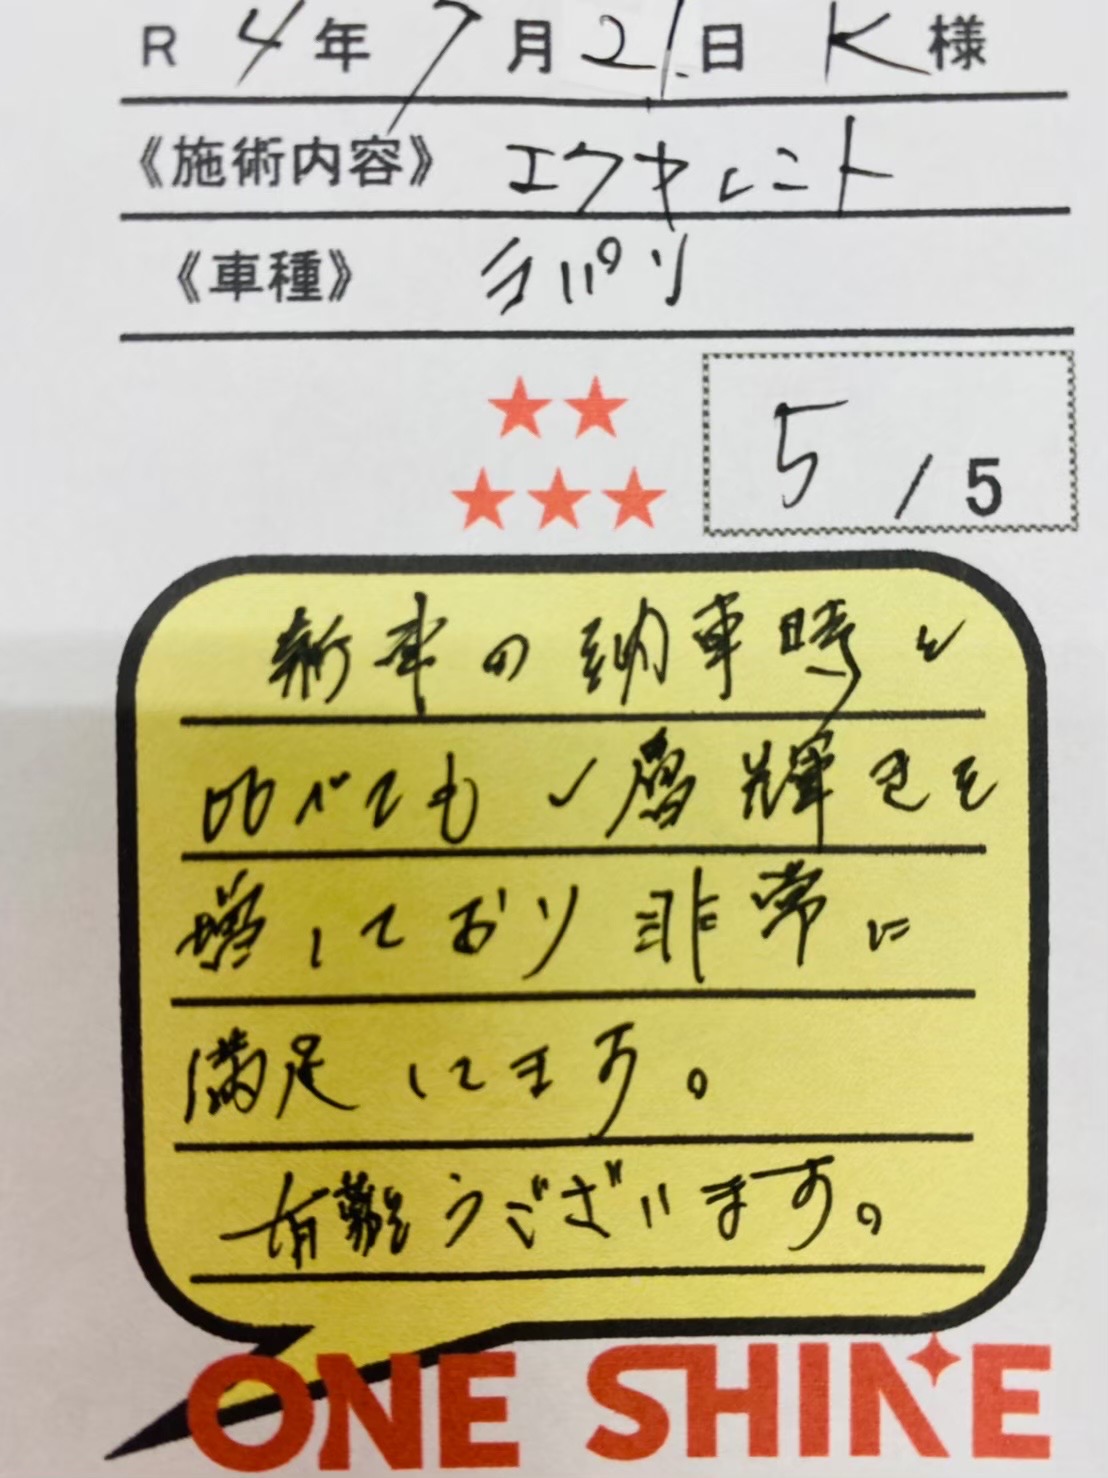 R 4年 7月21日 K様
《施術内容》 エクセレント
《車種》 ラパン
5/5
新車の納車時と
比べても一層輝きを
増しており非常に
満足してます。
有難うございます。
ONE SHINE